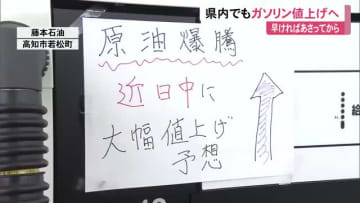 藤本石油
高知市若松町
県内でもガソリン値上げへ
早ければあさってから
原油爆騰
近日中に
大幅値上げ
予想
給